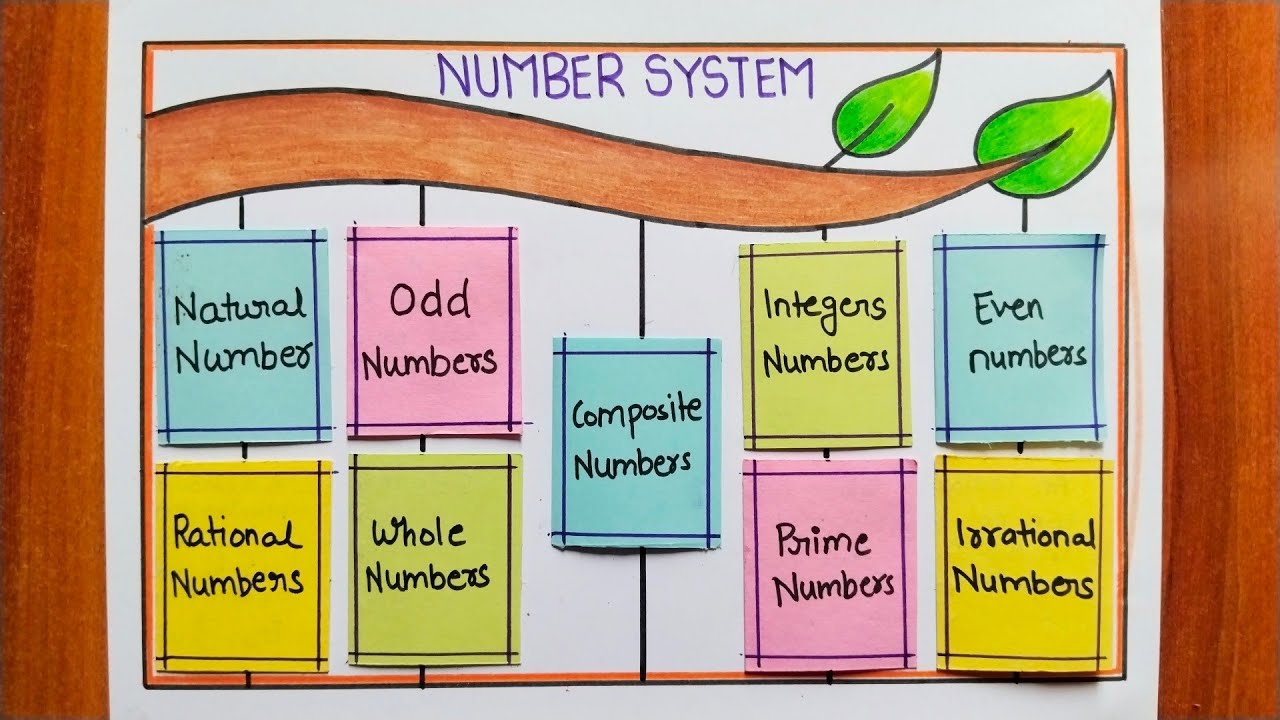 NUMBER SYSTEM
Natural
Number
Odd
Numbers
Composite
Numbers
Integers
Numbers
Even
numbers
Rational
Numbers
Whole
Numbers
Prime
Numbers
Irrational
Numbers